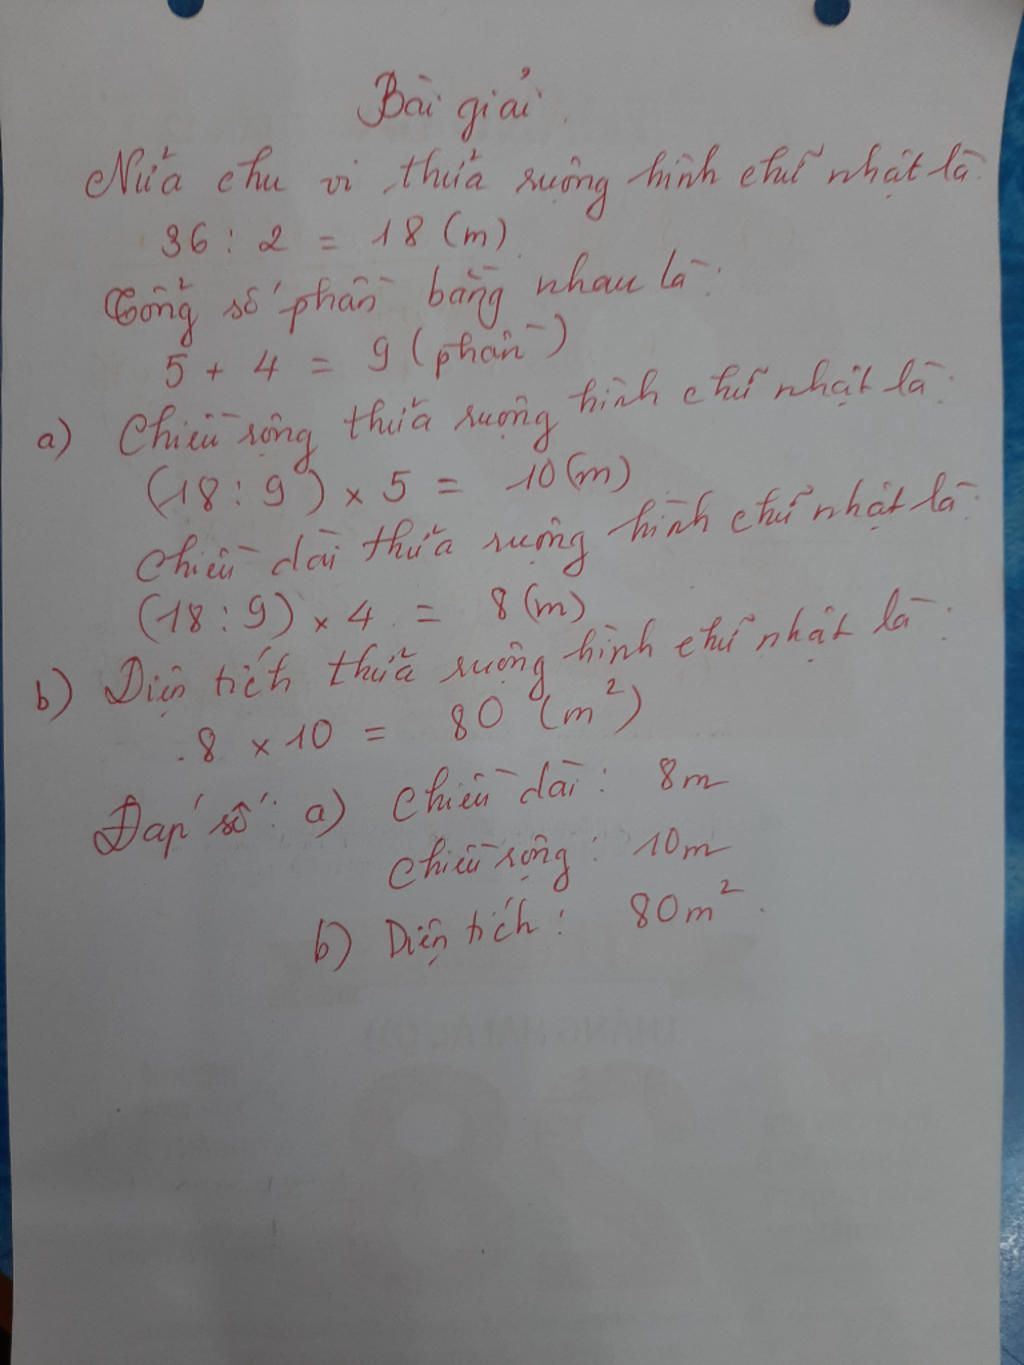 Bài giải
Nửa chu vi thửa ruộng hình chữ nhật là:
36 : 2 = 18 (m)
Tổng số phần bằng nhau là:
5 + 4 = 9 (phần)
a) Chiều rộng thửa ruộng hình chữ nhật là:
(18 : 9) × 5 = 10 (m)
Chiều dài thửa ruộng hình chữ nhật là:
(18 : 9) × 4 = 8 (m)
b) Diện tích thửa ruộng hình chữ nhật là:
8 × 10 = 80 (m²)
Đáp số: a) Chiều dài: 8m
Chiều rộng: 10m
b) Diện tích: 80m².